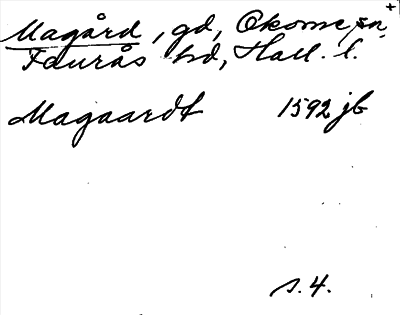 Magård, gd, Okome sn,
Faurås hd, Hall. l.
Magaardt 1592 jb
s. 4.